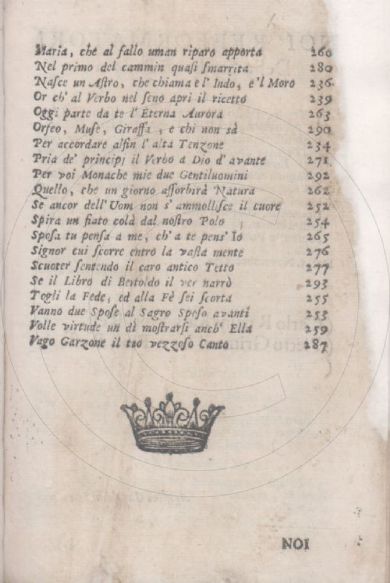 Maria, che al fallo uman riparo apporta 260
Nel primo del cammin quasi smarrita 280
Nasce un Astro, che chiama e l' Indo, e 'l Moro 236
Or ch' al Verbo nel seno apri il ricetto 239
Oggi parte da te l' Eterna Aurora 263
Orfeo, Muse, Giraffa, e chi non sà 290
Per accordare alfin l' alta Tenzone 234
Pria de' principj il Verbo a Dio d' avante 271
Per voi Monache mie due Gentiluomini 292
Quello, che un giorno assorbirà Natura 262
Se ancor dell' Uom non s' ammollisce il cuore 252
Spira un fiato colà dal nostro Polo 254
Sposa tu pensa a me, ch' a te pens' Io 265
Signor cui scorre entro la vasta mente 276
Scuoter sentendo il caro antico Tetto 277
Se il Libro di Bertoldo il ver narrò 293
Togli la Fede, ed alla Fè sei scorta 255
Vanno due Spose al Sagro Sposo avanti 253
Volle virtude un dì mostrarsi anch' Ella 259
Vago Garzone il tuo vezzoso Canto 287
NOI